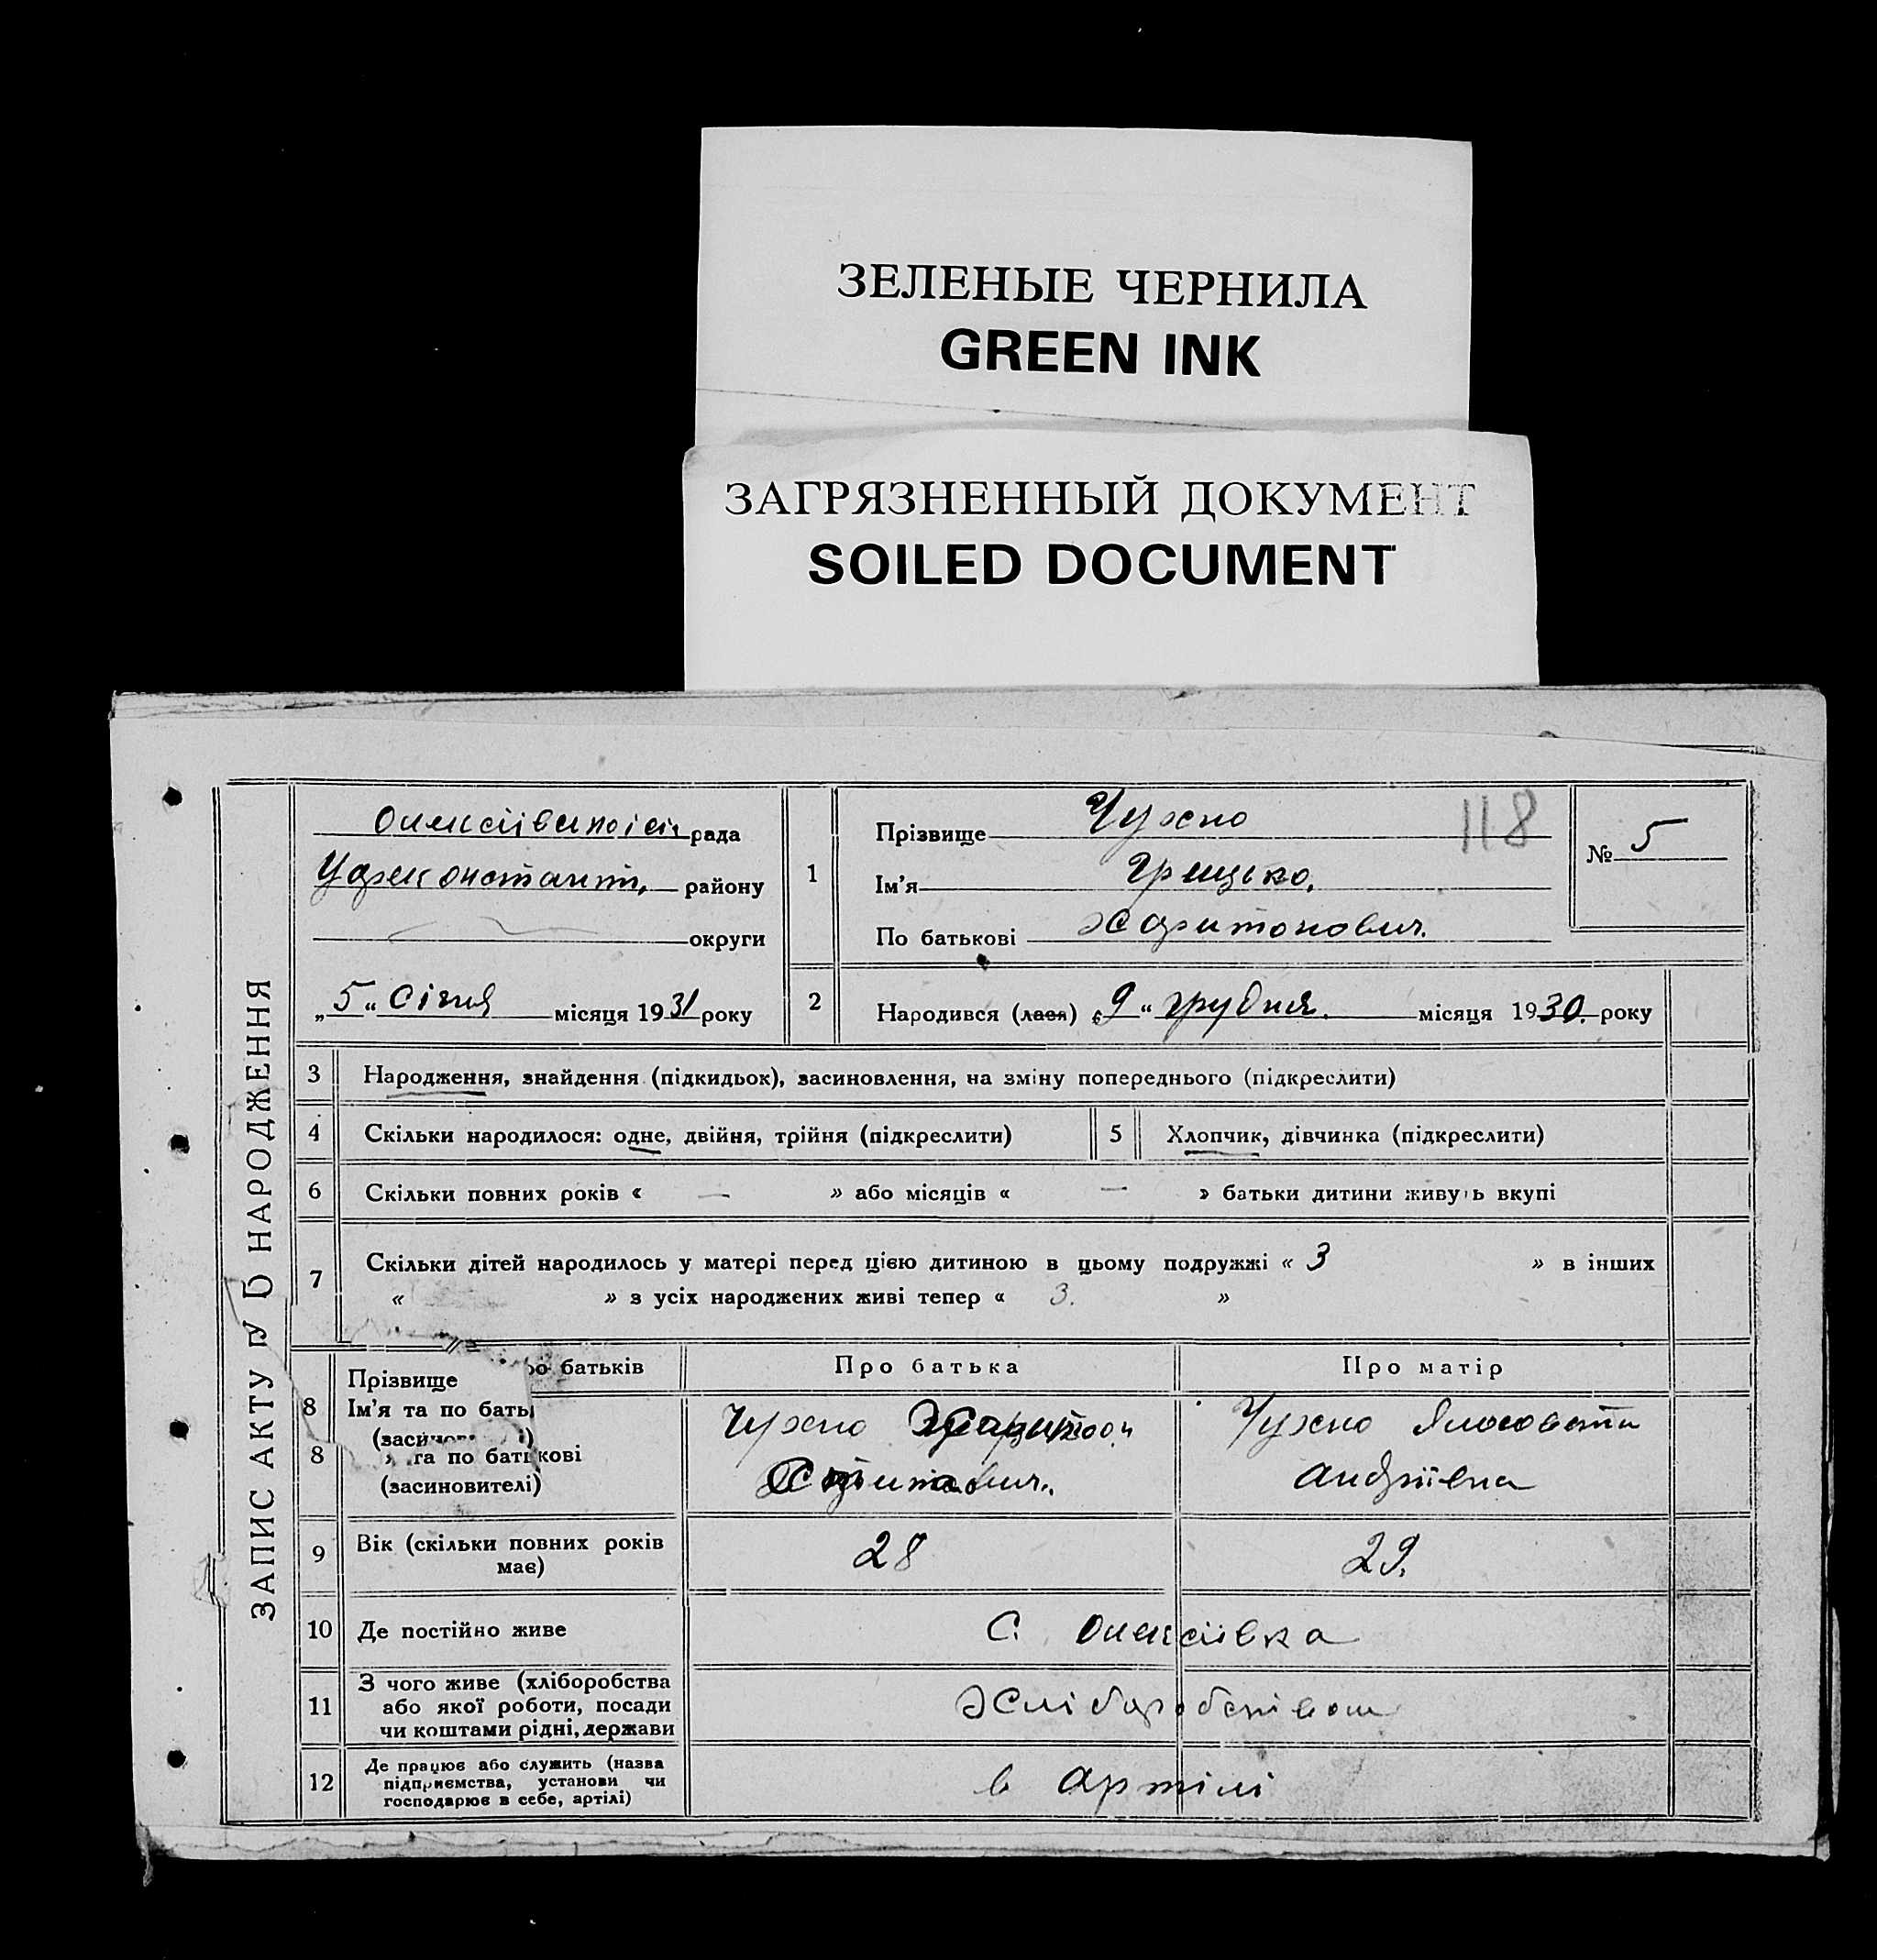 ЗЕЛЕНЫЕ ЧЕРНИЛА
GREEN INK
ЗАГРЯЗНЕННЫЙ ДОКУМЕНТ
SOILED DOCUMENT
ЗАПИС АКТУ НАРОДЖЕННЯ
рада
району
округи
„5“ Січня місяця 1931 року
118
№ 5
1
Прізвище Чухно
Ім'я Грицько.
По батькові Харитонович.
2
Народився (лася) „9“ грудня. місяця 1930. року
3 Народження, знайдення (підкидьок), засиновлення, на зміну попереднього (підкреслити)
4 Скільки народилося: одне, двійня, трійня (підкреслити)
5 Хлопчик, дівчинка (підкреслити)
6 Скільки повних років « — » або місяців « — » батьки дитини живуть вкупі
7 Скільки дітей народилось у матері перед цією дитиною в цьому подружжі « 3 » в інших
« » з усіх народжених живі тепер « 3. »
батьків
Про батька
Про матір
8 Прізвище
Ім'я та по бать
8 та по батькові
(засиновителі)
Чухно Харитон
Чухно
Андріївна
9 Вік (скільки повних років
має)
28
29.
10 Де постійно живе
С. Олексіївка
11 З чого живе (хліборобства
або якої роботи, посади
чи коштами рідні, держави
Хліборобством
12 Де працює або служить (назва
підприємства, установи чи
господарює в себе, артілі)
в артілі